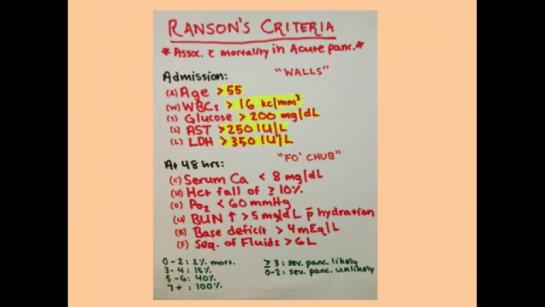 RANSON'S CRITERIA
* Assoc. c̄ mortality in Acute panc. *
Admission: "WALLS"
(A) Age >55
(W) WBCs > 16 kc/mm³
(S) Glucose > 200 mg/dL
(L) AST >250 IU/L
(L) LDH >350 IU/L
At 48 hrs: "FO' CHUB"
(C) Serum Ca < 8 mg/dL
(H) Hct fall of ≥ 10%
(O) PO₂ < 60 mmHg
(U) BUN ↑ > 5 mg/dL p̄ hydration
(B) Base deficit > 4 mEq/L
(F) Seq. of Fluids > 6L
0-2: 2% mort.
3-4: 15%
5-6: 40%
7+ : 100%
≥3: sev. panc. likely
0-2: sev. panc. unlikely